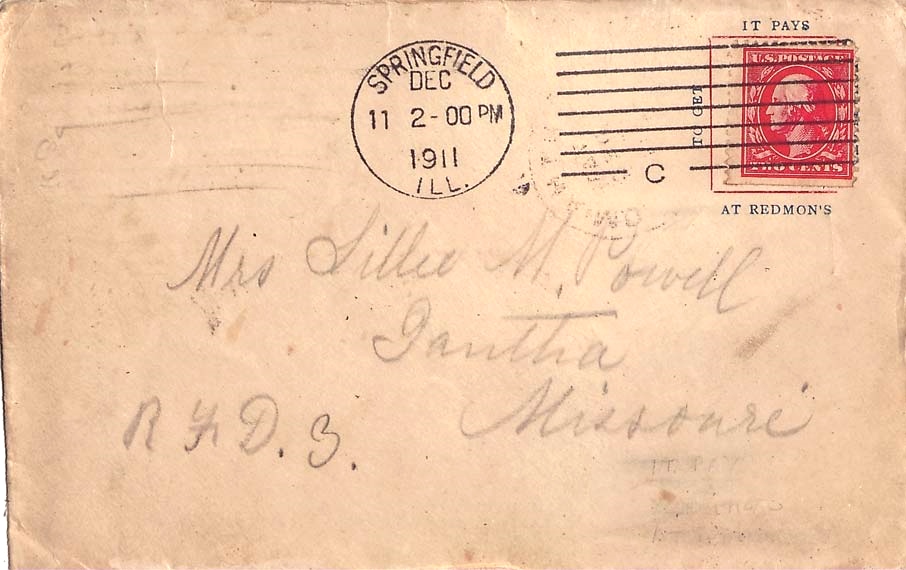 IT PAYS
TO GET
AT REDMON'S
SPRINGFIELD
DEC
11 2-00 PM
1911
ILL.
C
U.S. POSTAGE
TWO CENTS
Mrs Lillie M. Powell
Iantha
Missouri
R F D. 3.
IT PAY